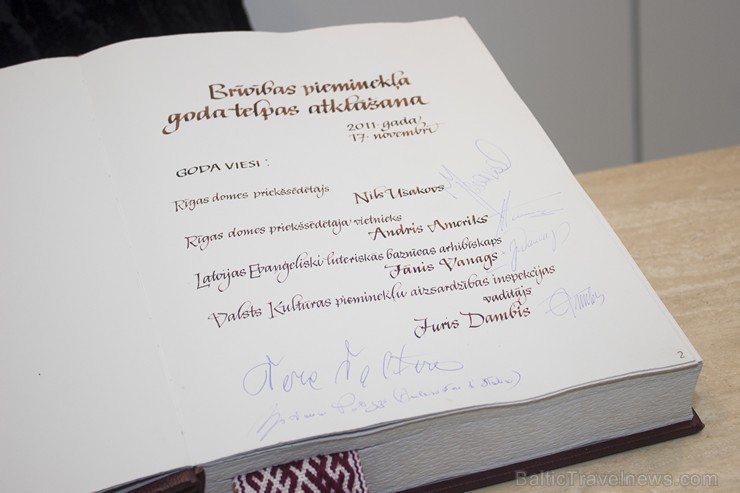 Brīvības pieminekļa
goda telpas atklāšana
2011. gada
17. novembrī
GODA VIESI:
Rīgas domes priekšsēdētājs
Nils Ušakovs
Rīgas domes priekšsēdētāja vietnieks
Andris Ameriks
Latvijas Evaņģēliski luteriskās baznīcas arhibīskaps
Jānis Vanags
Valsts Kultūras pieminekļu aizsardzības inspekcijas
vadītājs
Juris Dambis
2
BalticTravelnews.com